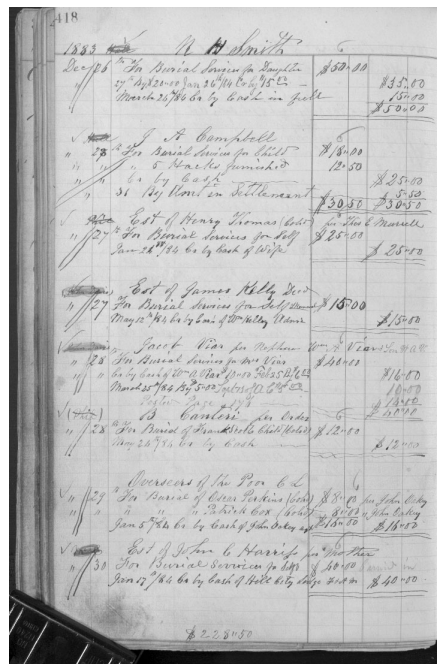 418
1883 R H Smith
Dec 26 th For Burial Services for Daughter $50.00
27th By $20.00 Jan 26th/84 Co by $15.00 $35.00
March 26th/84 Co by Cash in full 15.00
$50.00
J A Campbell
" 28 th For Burial Services for Child $18.00
" " 5 Hacks furnished 12.50
" Co by Cash $25.00
" 31 By Amt in Settlement 5.50
$30.50 $30.50
Est of Henry Thomas (Cold) per Thos C
" 27 th For Burial Services for Self $25.00
Jan 26th/84 Co by Cash of Wife $25.00
Est of James Kelly Decd
" 27 For Burial Services for Self $15.00
May 12th/84 Co by Est of Wm Kelley $15.00
Jacob Viar per Nephew Wm A Viar
" 28 For Burial Services for Mrs Viar $40.00
Co by Cash of Wm A Viar 10.00 Feb 25 $16.00
March 25th/84 By 5.00 10.00
Page
$40.00
B Canton per order
" 28 th For Burial of Frank Child (Cold) $12.00
May 24th/84 Co by Cash $12.00
Overseers of the Poor C L
" 29 th For Burial of Oscar Perkins (Cold) $8.00 per John Oakey
" " " " Patrick Cox (Cold) 8.00 " John Oakey
Jan 5th/84 Co by Cash of John Oakey $16.00 $16.00
Est of John C Harris per Mother
" 30 For Burial Services for Self $40.00
Jan 5th/84 Co by Cash of Hill City Lodge $40.00
$228.50